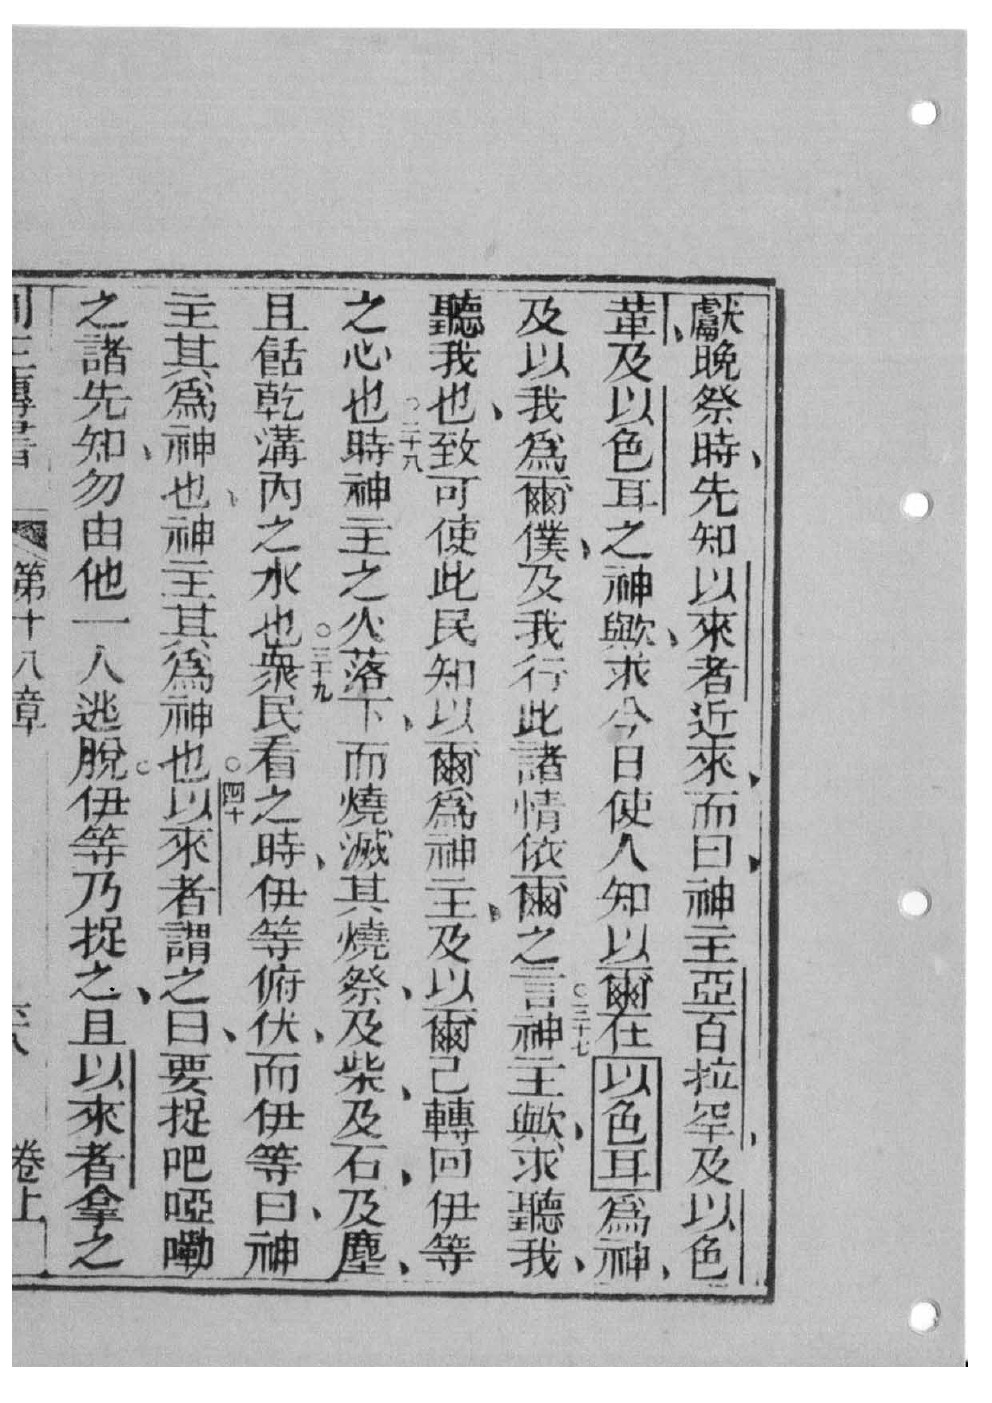 獻晚祭時、先知以來者近來、而曰、神主亞百拉罕、及以色
革、及以色耳之神歟、求今日使人知以爾在以色耳爲神、
及以我爲爾僕、及我行此諸情依爾之言○三十七神主歟、求聽我、
聽我也、致可使此民知以爾爲神主、及以爾己轉回伊等
之心也○三十八時神主之火落下、而燒滅其燒祭、及柴、及石、及塵、
且餂乾溝內之水也○三十九衆民看之時、伊等俯伏、而伊等曰、神
主其爲神也、神主其爲神也○四十以來者謂之曰、要捉吧啞嘞
之諸先知、勿由他一人逃脫。伊等乃捉之、且以來者拿之
列王傳書 第十八章 卷上